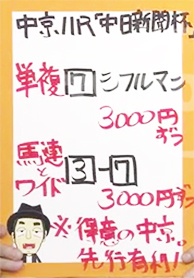 中京11R「中日新聞杯」
単複 7 シフルマン
3000円
ずつ
馬連
と
ワイド 3-7
3000円ずつ
※得意の中京。
先行有利!